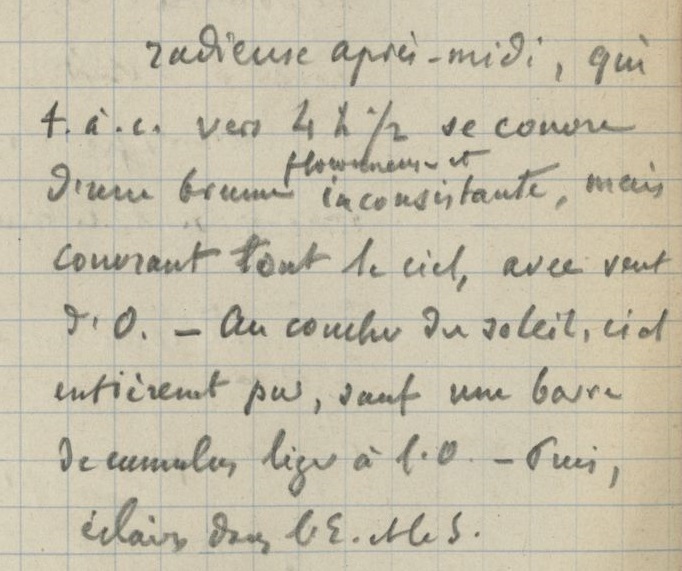 radieuse après-midi, qui
t. à. c. vers 4 h 1/2 se couvre
d'une brume
et
inconsistante, mais
couvrant tout le ciel, avec vent
d'O. — Au coucher du soleil, ciel
entièrement pur, sauf une barre
de cumulus à l'O — Puis,
éclairs dans l'E. et le S.